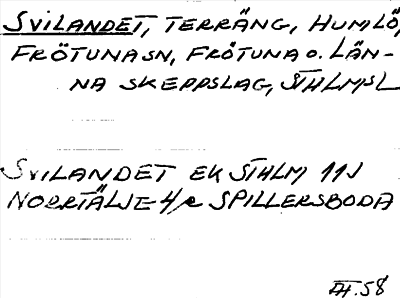 SVILANDET, TERRÄNG, HUMLÖ,
FRÖTUNA SN, FRÖTUNA O. LÄN-
NA SKEPPSLAG, STHLMSL
SVILANDET EK STHLM 11J
NORRTÄLJE 4/c SPILLERSBODA
.58